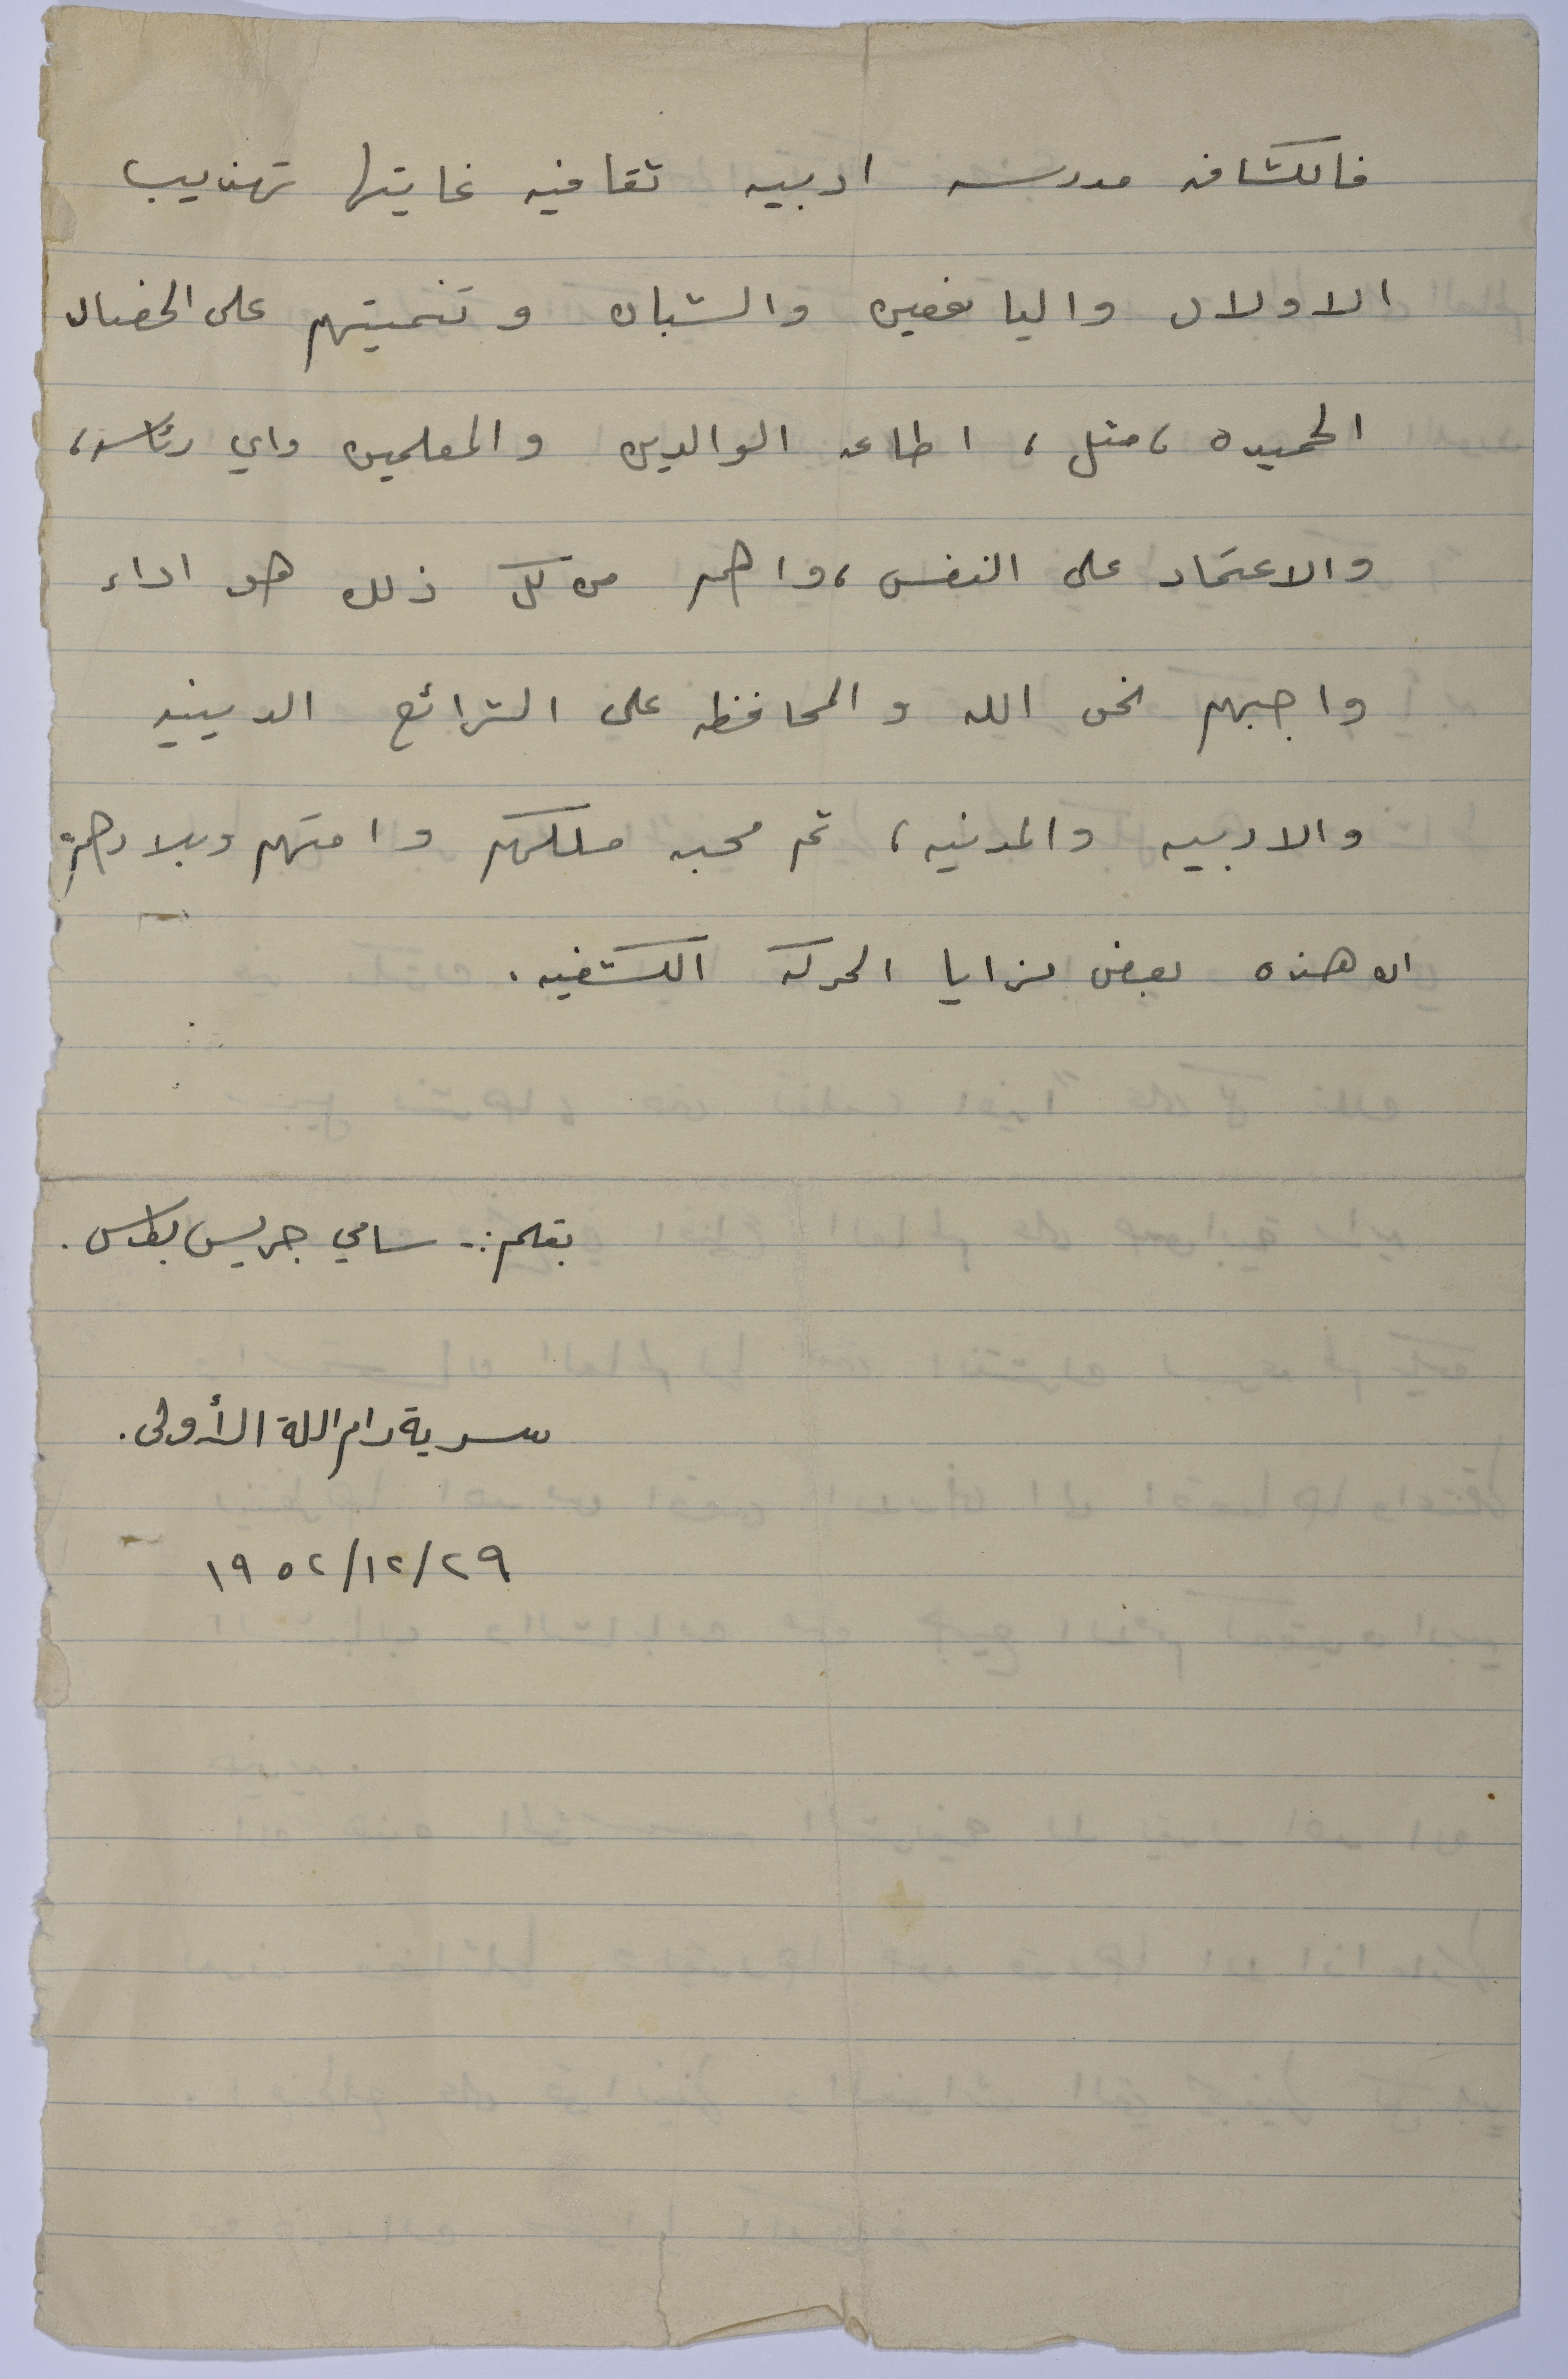 فالكشافه مدرسه ادبيه ثقافيه غايتها تهذيب
الاولاد واليافعين والشبان وتنميتهم على الخصال
الحميده ، مثل ، اطاعه الوالدين والمعلمين واي رئاسه ،
والاعتماد على النفس ، واهم من كل ذلك هو اداء
واجبهم نحو الله والمحافظه على الشرائع الدينيه
والادبيه والمدنيه ، ثم محبه ملكهم وامتهم وبلادهم
ان هذه بعض مزايا الحركه الكشفيه .
بقلم :- سامي جريس بطرس .
سرية رام اللة الأولى .
٢٩/١٢/١٩٥٢